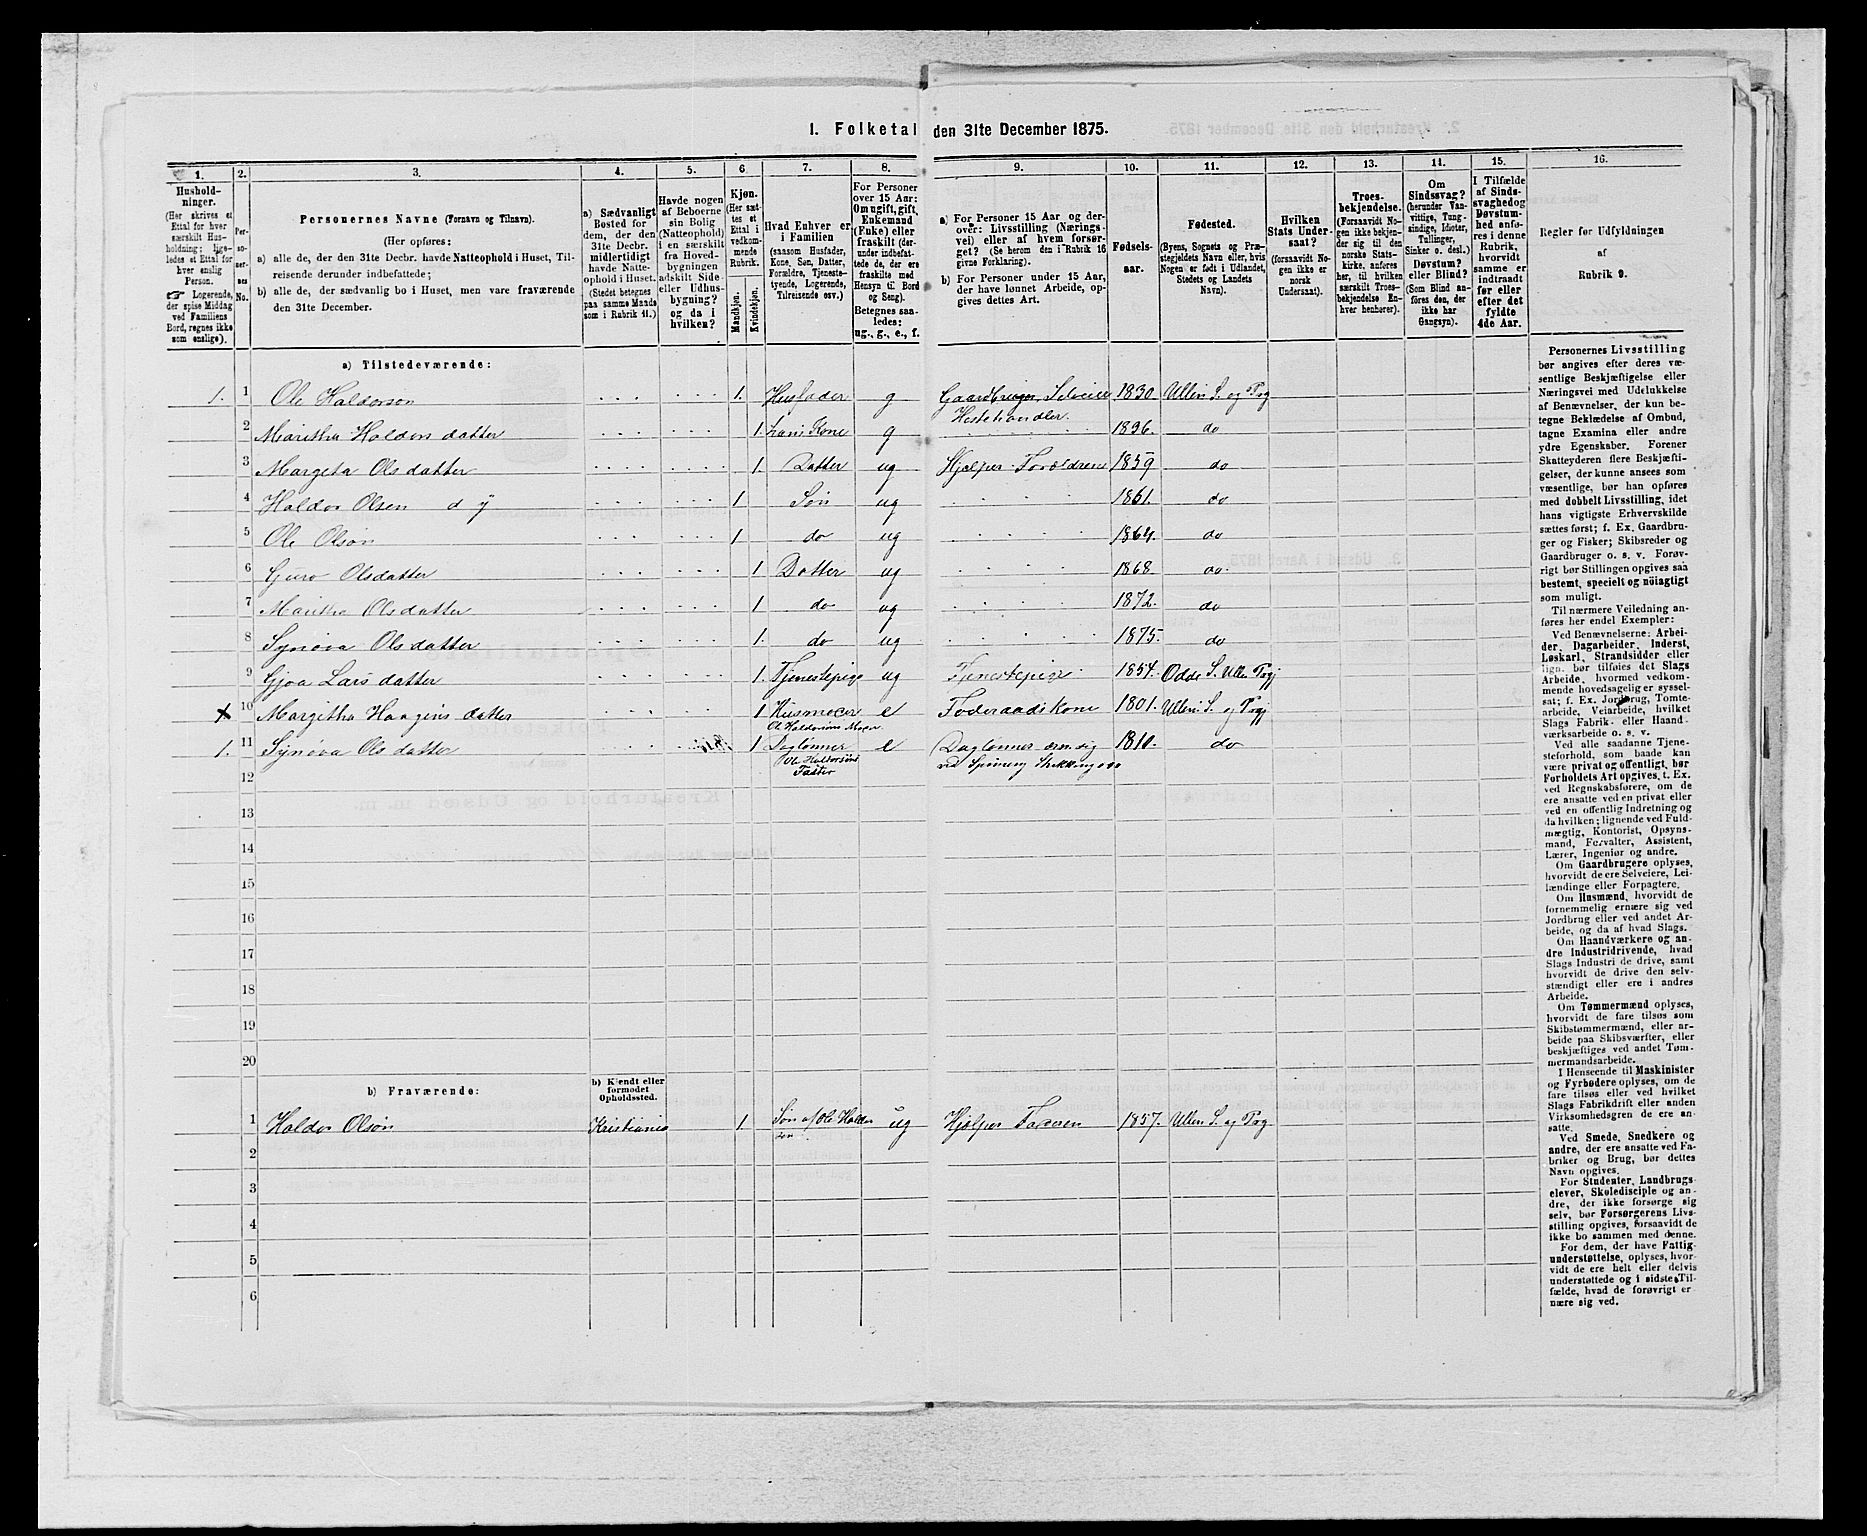 1. Folketal den 31te December 1875.
1.
2.
3.
4.
5.
6.
7.
8.
9.
10.
11.
12.
13.
14.
15.
16.
Hushold-
ninger.
(Her skrives et
Ettal for hver
særskilt Hus-
holdning; lige-
ledes et Ettal for
hver enslig
Person.
☞ Logerende,
der spise Middag
ved Familiens
Bord, regnes ikke
som enslige).
Per-
so-
ner-
nes
No.
Personernes Navne (Fornavn og Tilnavn).
(Her opføres:
a) alle de, der den 31te Decbr. havde Natteophold i Huset, Til-
reisende derunder indbefattede;
b) alle de, der sædvanlig bo i Huset, men vare fraværende
den 31te December.
a) Sædvanligt
Bosted for
dem, der den
31te Decbr.
midlertidigt
havde Natte-
ophold i Huset.
(Stedet betegnes
paa samme Maade
som i Rubrik 11.)
Havde nogen
af Beboerne
sin Bolig
(Natteophold)
i en særskilt
fra Hoved-
bygningen
adskilt Side-
eller Udhus-
bygning?
og da i
hvilken?
Kjøn.
(Her sæt-
tes et
Ettal i
vedkom-
mende
Rubrik.
Mandkjøn.
Kvindekjøn.
Hvad Enhver er
i Familien
(saasom Husfader,
Kone, Søn, Datter,
Forældre, Tjeneste-
tyende, Logerende,
Tilreisende osv.)
For Personer
over 15 Aar:
Om ugift, gift,
Enkemand
(Enke) eller
fraskilt (der-
under indbefat-
tede de, der ere
fraskilte med
Hensyn til Bord
og Seng).
Betegnes saa-
ledes:
ug., g., e., f.
a) For Personer 15 Aar og der-
over: Livsstilling (Nærings-
vei) eller af hvem forsør-
get? (Se herom den i Rubrik 16
givne Forklaring).
b) For Personer under 15 Aar,
der have lønnet Arbeide, op-
gives dettes Art.
Fødsels-
aar.
Fødested.
(Byens, Sognets og Præ-
stegjeldets Navn eller, hvis
Nogen er født i Udlandet,
Stedets og Landets
Navn).
Hvilken
Stats Under-
saat?
(forsaavidt No-
gen ikke er
norsk
Undersaat).
Troes-
bekjendelse.
(Forsaavidt No-
gen ikke bekjen-
der sig til den
norske Stats-
kirke, anføres
her, til hvilken
særskilt Troes-
bekjendelse En-
hver henhører).
Om
Sindssvag?
(herunder Van-
vittige, Tung-
sindige, Idioter,
Tullinger,
Sinker o. desl.)
Døvstum?
eller Blind?
(Som Blind an-
føres den, der
ikke har
Gangsyn).
I Tilfælde
af Sinds-
svaghed og
Døvstum-
hed anfø-
res i denne
Rubrik,
hvorvidt
samme er
indtraadt
før eller
efter det
fyldte
4de Aar.
Regler før Udfyldningen
af
Rubrik 9.
a) Tilstedeværende:
1. 1 Ole Haldorson 1. Husfader g Gaardbruger, Selveier Hestehandler. 1830. Ullens S. og Prg
2 Maritha Haldorsdatter 1. hans Kone g 1836. do
3 Margeta Olsdatter 1. Datter ug Hjælper Forældrene 1859 do
4 Haldor Olsen d y 1. Søn ug 1861. do
5 Ole Olson 1 do ug 1864. do
6 Guro Olsdatter 1 Datter ug 1868. do
7 Maritha Olsdatter 1 do ug 1872. do
8 Synøva Olsdatter 1. do ug 1875. do
9 Gjoa Larsdatter 1. Tjenestepige ug Tjenestepige 1854. Odde S. Ullens Prgj
10 Margitha Haagensdatter 1 Husmoer e Føderaadskone 1801. Ullens S. og Prgj
Ole Haldorsons Moer
1. 11 Synøva Olsdatter 1 Dagtønner e Daglønner ærnæ sig 1810. do
Ole Haldorsöns ved Spinning Strikking
Faster
12
13
14
15
16
17
18
19
20
b) Fraværende:
b) Kjendt eller
formodet
Opholdssted.
1 Haldor Olson Kristiania 1 Søn af Ole Haldor ug Hjelper Faderen 1857. Ullens S. og Prg
son
2
3
4
5
6
Personernes Livsstilling
bør angives efter deres væ-
sentlige Beskjæftigelse eller
Næringsvei med Udelukkelse
af Benævnelser, der kun be-
tegne Beklædelse af Ombud,
tagne Examina eller andre
ydre Egenskaber. Forener
Skatteyderen flere Beskjæfti-
gelser, der kunne ansees som
væsentlige, bør han opføres
med dobbelt Livsstilling, idet
hans vigtigste Erhvervskilde
sættes først; f. Ex. Gaardbru-
ger og Fisker; Skibsreder og
Gaardbruger o. s. v. Forøv-
rigt bør Stillingen opgives saa
bestemt, specielt og nöiagtigt
som muligt.
Til nærmere Veiledning an-
føres her endel Exempler:
Ved Benævnelserne: Arbei-
der, Dagarbeider, Inderst,
Løskarl, Strandsidder eller
lign. bør tilføies det Slags
Arbeide, hvormed vedkom-
mende hovedsagelig er syssel-
sat; f. Ex. Jordbrug, Tomte-
arbeide, Veiarbeide, hvilket
Slags Fabrik- eller Haand-
værksarbeide o. s. v.
Ved alle saadanne Tjene-
steforhold, som baade kan
være privat og offentligt, bør
Forholdets Art opgives, t. Ex.
ved Regnskabsførere, om de
ere ansatte ved en privat eller
ved en offentlig Indretning og
da hvilken; lignende ved Fuld-
mægtig, Kontorist, Opsyns-
mand, Forvalter, Assistent,
Lærer, Ingeniør og andre.
Om Gaardbrugere oplyses,
hvorvidt de ere Selveiere, Lei-
lændinge eller Forpagtere.
Om Husmænd, hvorvidt de
fornemmelig ernære sig ved
Jordbrug eller ved andet Ar-
beide, og da af hvad Slags.
Om Haandværkere og an-
dre Industridrivende, hvad
Slags Industri de drive, samt
hvorvidt de drive den selv-
stændigt eller ere i andres
Arbeide.
Om Tømmermænd oplyses,
hvorvidt de fare tilsøs som
Skibstømmermænd, eller ar-
beide paa Skibsværfter, eller
beskjæftiges ved andet Tøm-
mermandsarbeide.
I Henseende til Maskinister
og Fyrbødere oplyses, om de
fare tilsøs eller ved hvilket
Slags Fabrikdrift eller anden
Virksomhedsgren de ere an-
satte.
Ved Smede, Snedkere og
andre, der ere ansatte ved Fa-
briker og Brug, bør dettes
Navn opgives.
For Studenter, Landbrugs-
elever, Skoledisciple og an-
dre, der ikke forsørge sig
selv, bør Forsørgerens Livs-
stilling opgives, forsaavidt de
ikke bo sammen med denne.
For dem, der have Fattig-
understøttelse, oplyses, hvor-
vidt de ere helt eller delvis
understøttede og i sidste Til-
fælde, hvad de forøvrigt er-
nære sig ved.